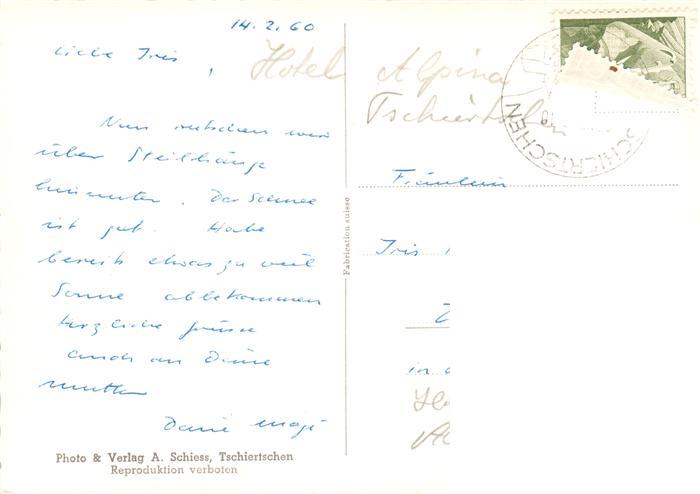 14.2.60
Liebe Iris,
Hotel Alpina
Tschiertschen
Nun rutschen wir
über Steilhänge
hinunter. Der Schnee
ist gut. Habe
bereits etwas zu viel
Sonne abbekommen
Herzliche Grüsse
auch an Deine
Mutter
Photo & Verlag A. Schiess, Tschiertschen
Reproduktion verboten
Fabrication suisse
TSCHIERTSCHEN
Fräulein
Iris